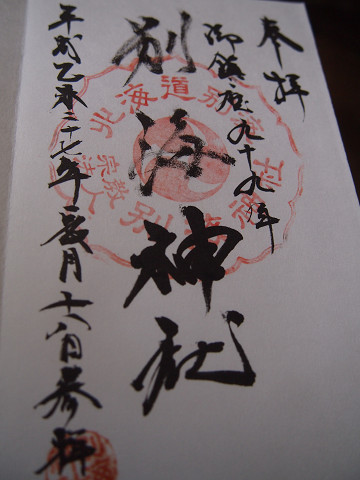 奉拝
御鎮座九十九年
別海神社
平成乙未二十七年
月十八日参拝
北海道別海
宗教法人
別海